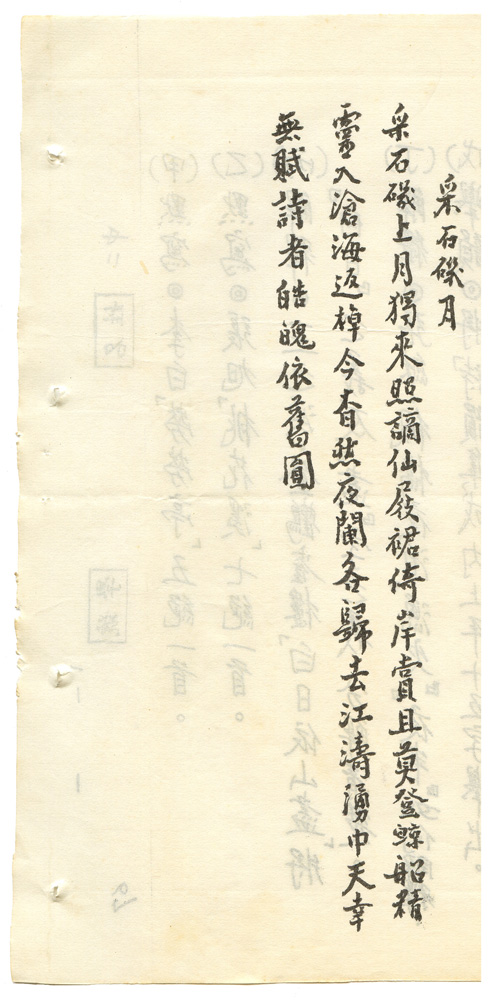 采石磯月
采石磯上月獨來照謫仙屐裙倚岸賞且莫登鯨船精
靈入滄海返棹今杳然夜闌各歸去江濤湧中天幸
無賦詩者皓魄依舊圓